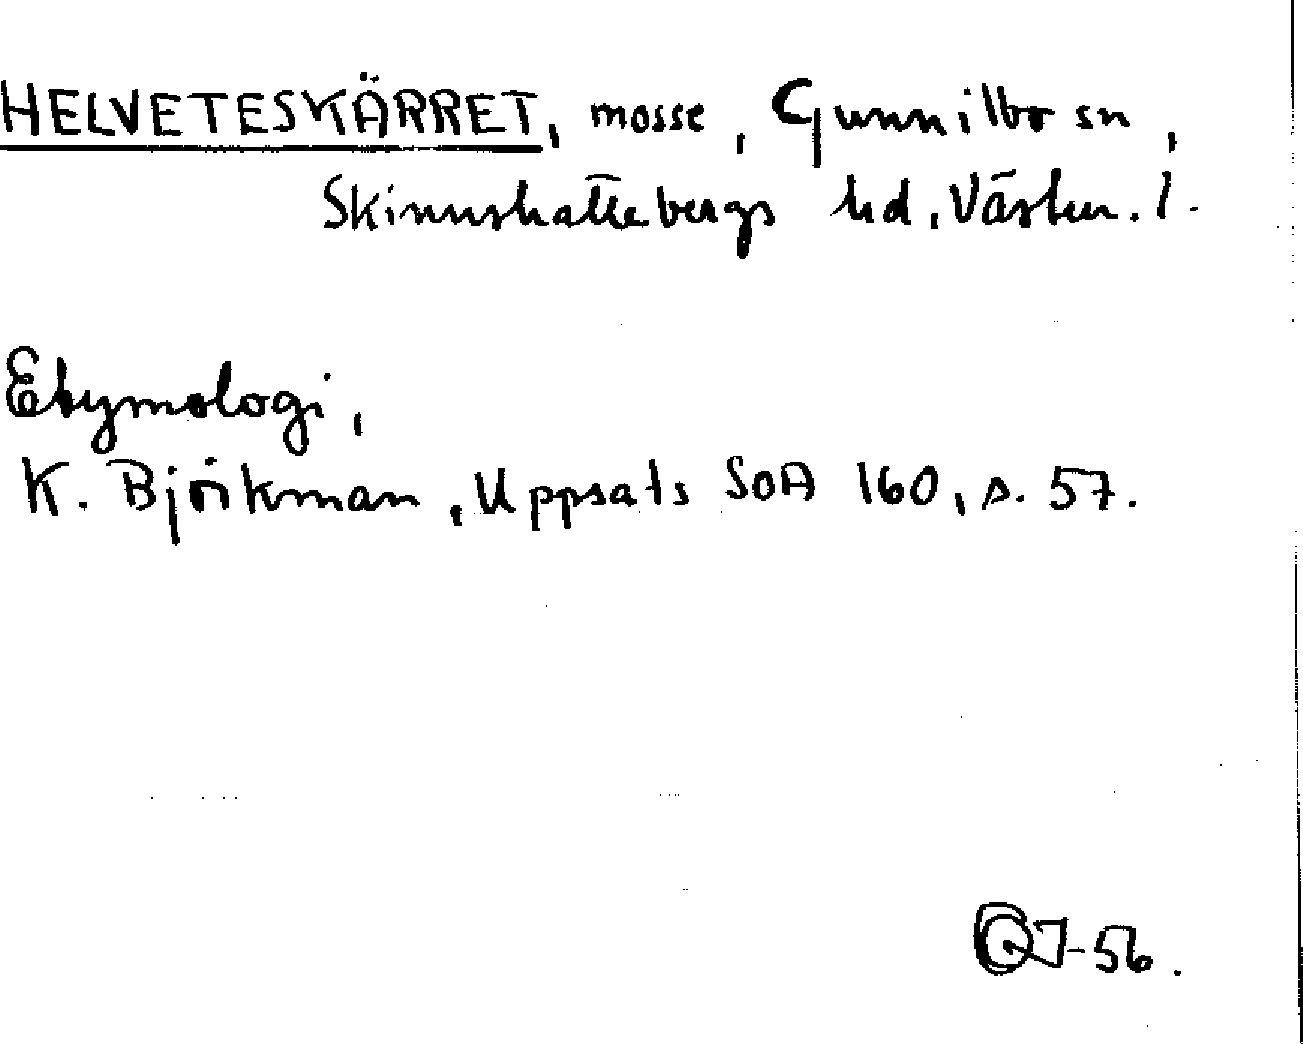 HELVETESKÄRRET, mosse, Gunnilbo sn,
Skinnskattebergs hd, Västm. l.
Etymologi,
K. Björkman, Uppsats SOA 160, s. 57.
-56.